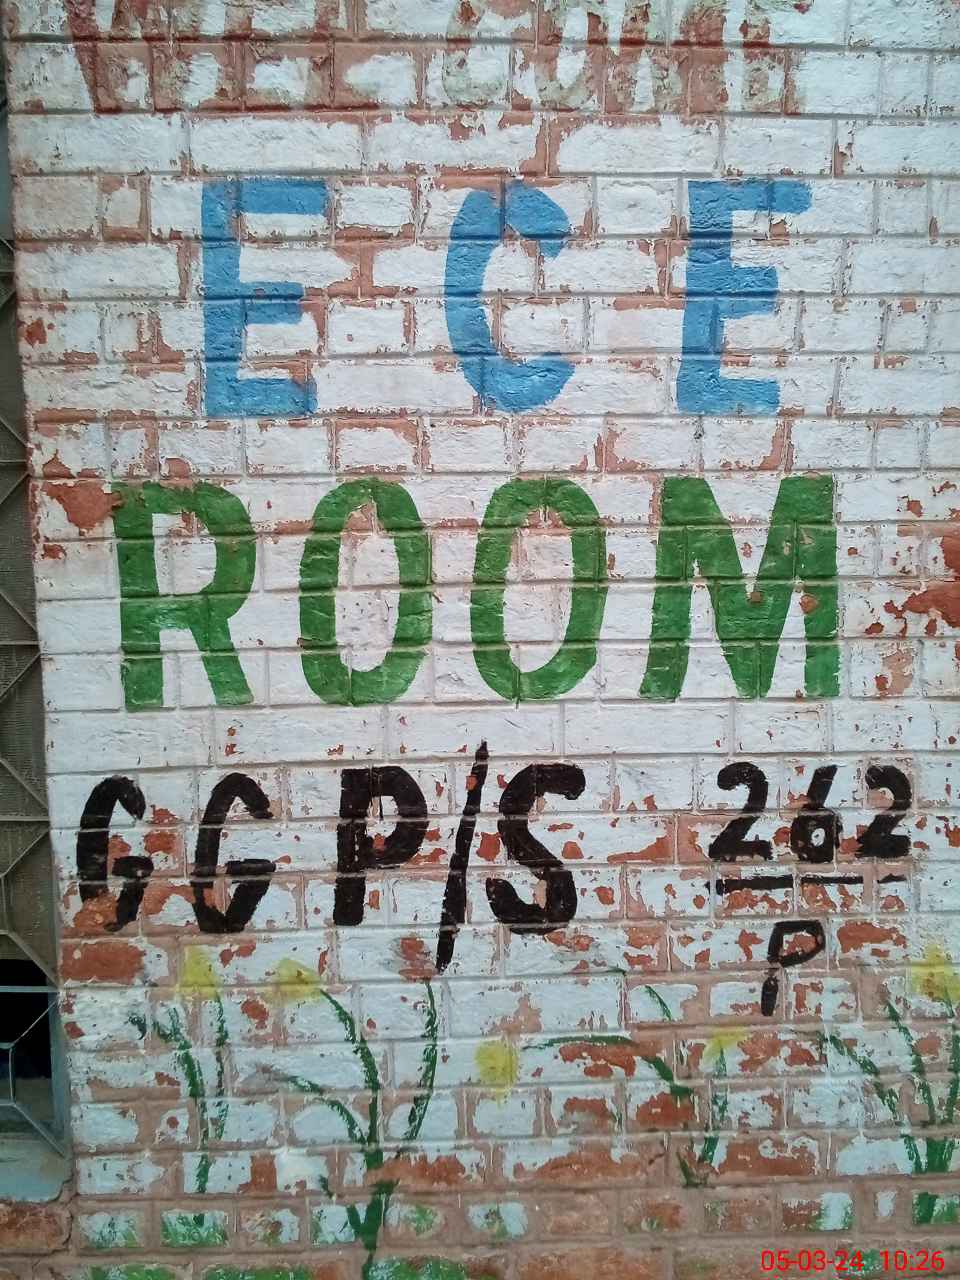 WEL COME
ECE
ROOM
GGP/S 262
P
05-03-24 10:26